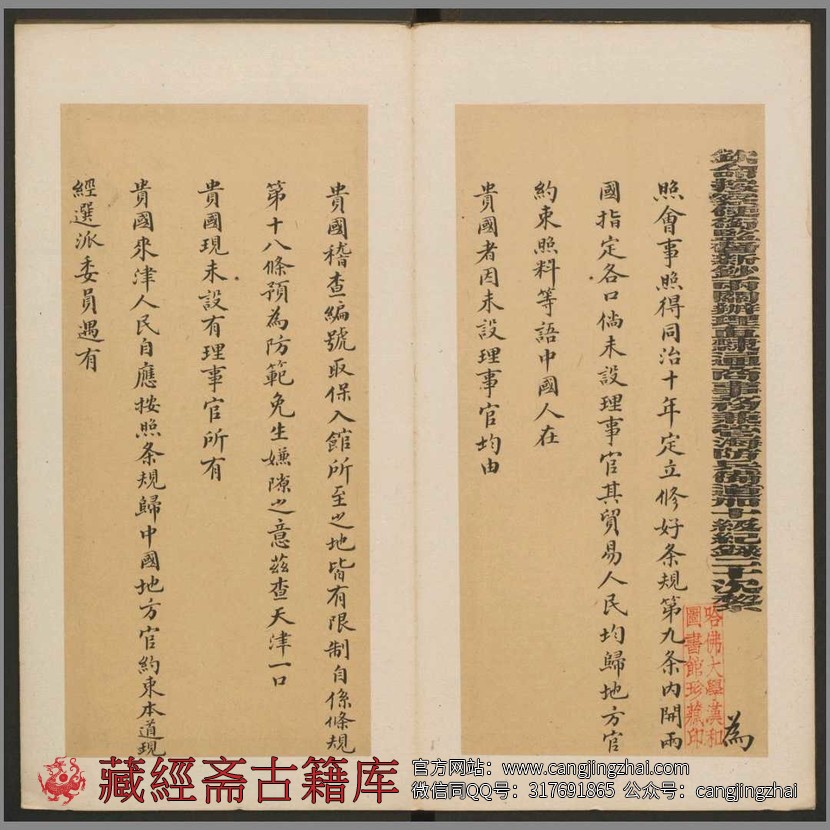 欽命按察使銜監督新鈔兩關辦理直隸通商事務兼管海防兵備道加十級紀錄二十次黎
為
照會事照得同治十年定立修好条規第九条內開兩
國指定各口倘未設理事官其貿易人民均歸地方官
約束照料等語中國人在
貴國者因未設理事官均由
貴國稽查編號取保入館所至之地皆有限制自係條規
第十八條預為防範免生嫌隙之意茲查天津一口
貴國現未設有理事官所有
貴國來津人民自應按照条規歸中國地方官約束本道現
經選派委員遇有
哈佛大學漢和
圖書館珍藏印
藏經斋古籍库
官方网站：www.cangjingzhai.com
微信同QQ号：317691865 公众号：cangjingzhai